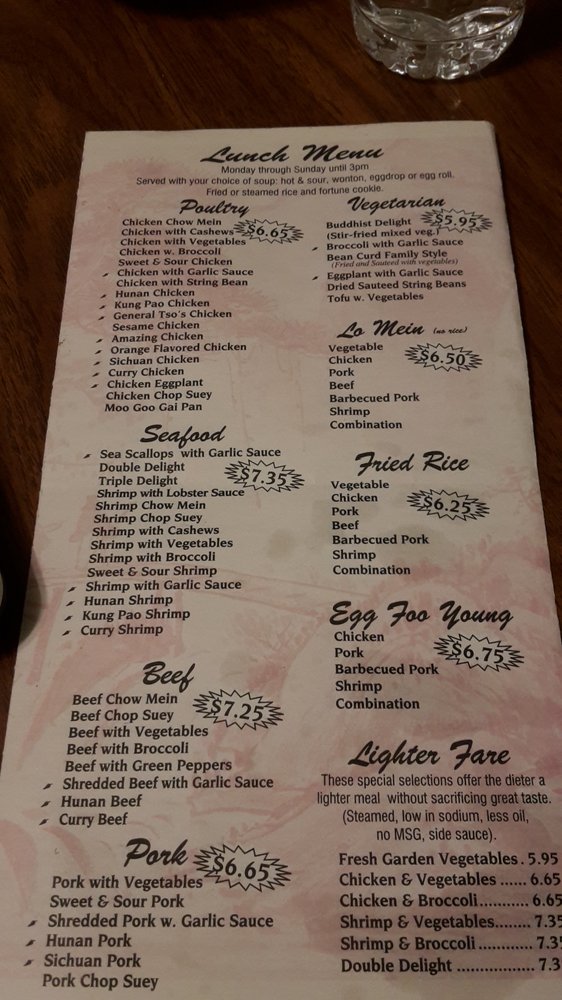 Lunch Menu
Monday through Sunday until 3pm
Served with your choice of soup: hot & sour, wonton, eggdrop or egg roll.
Fried or steamed rice and fortune cookie.
Poultry
$6.65
Chicken Chow Mein
Chicken with Cashews
Chicken with Vegetables
Chicken w. Broccoli
Sweet & Sour Chicken
Chicken with Garlic Sauce
Chicken with String Bean
Hunan Chicken
Kung Pao Chicken
General Tso's Chicken
Sesame Chicken
Amazing Chicken
Orange Flavored Chicken
Sichuan Chicken
Curry Chicken
Chicken Eggplant
Chicken Chop Suey
Moo Goo Gai Pan
Seafood
$7.35
Sea Scallops with Garlic Sauce
Double Delight
Triple Delight
Shrimp with Lobster Sauce
Shrimp Chow Mein
Shrimp Chop Suey
Shrimp with Cashews
Shrimp with Vegetables
Shrimp with Broccoli
Sweet & Sour Shrimp
Shrimp with Garlic Sauce
Hunan Shrimp
Kung Pao Shrimp
Curry Shrimp
Beef
$7.25
Beef Chow Mein
Beef Chop Suey
Beef with Vegetables
Beef with Broccoli
Beef with Green Peppers
Shredded Beef with Garlic Sauce
Hunan Beef
Curry Beef
Pork
$6.65
Pork with Vegetables
Sweet & Sour Pork
Shredded Pork w. Garlic Sauce
Hunan Pork
Sichuan Pork
Pork Chop Suey
Vegetarian
$5.95
Buddhist Delight
(Stir-fried mixed veg.)
Broccoli with Garlic Sauce
Bean Curd Family Style
(Fried and Sauteed with vegetables)
Eggplant with Garlic Sauce
Dried Sauteed String Beans
Tofu w. Vegetables
Lo Mein (no rice)
$6.50
Vegetable
Chicken
Pork
Beef
Barbecued Pork
Shrimp
Combination
Fried Rice
$6.25
Vegetable
Chicken
Pork
Beef
Barbecued Pork
Shrimp
Combination
Egg Foo Young
$6.75
Chicken
Pork
Barbecued Pork
Shrimp
Combination
Lighter Fare
These special selections offer the dieter a
lighter meal without sacrificing great taste.
(Steamed, low in sodium, less oil,
no MSG, side sauce).
Fresh Garden Vegetables . 5.95
Chicken & Vegetables ...... 6.65
Chicken & Broccoli........... 6.65
Shrimp & Vegetables........ 7.35
Shrimp & Broccoli ............ 7.35
Double Delight ................. 7.3